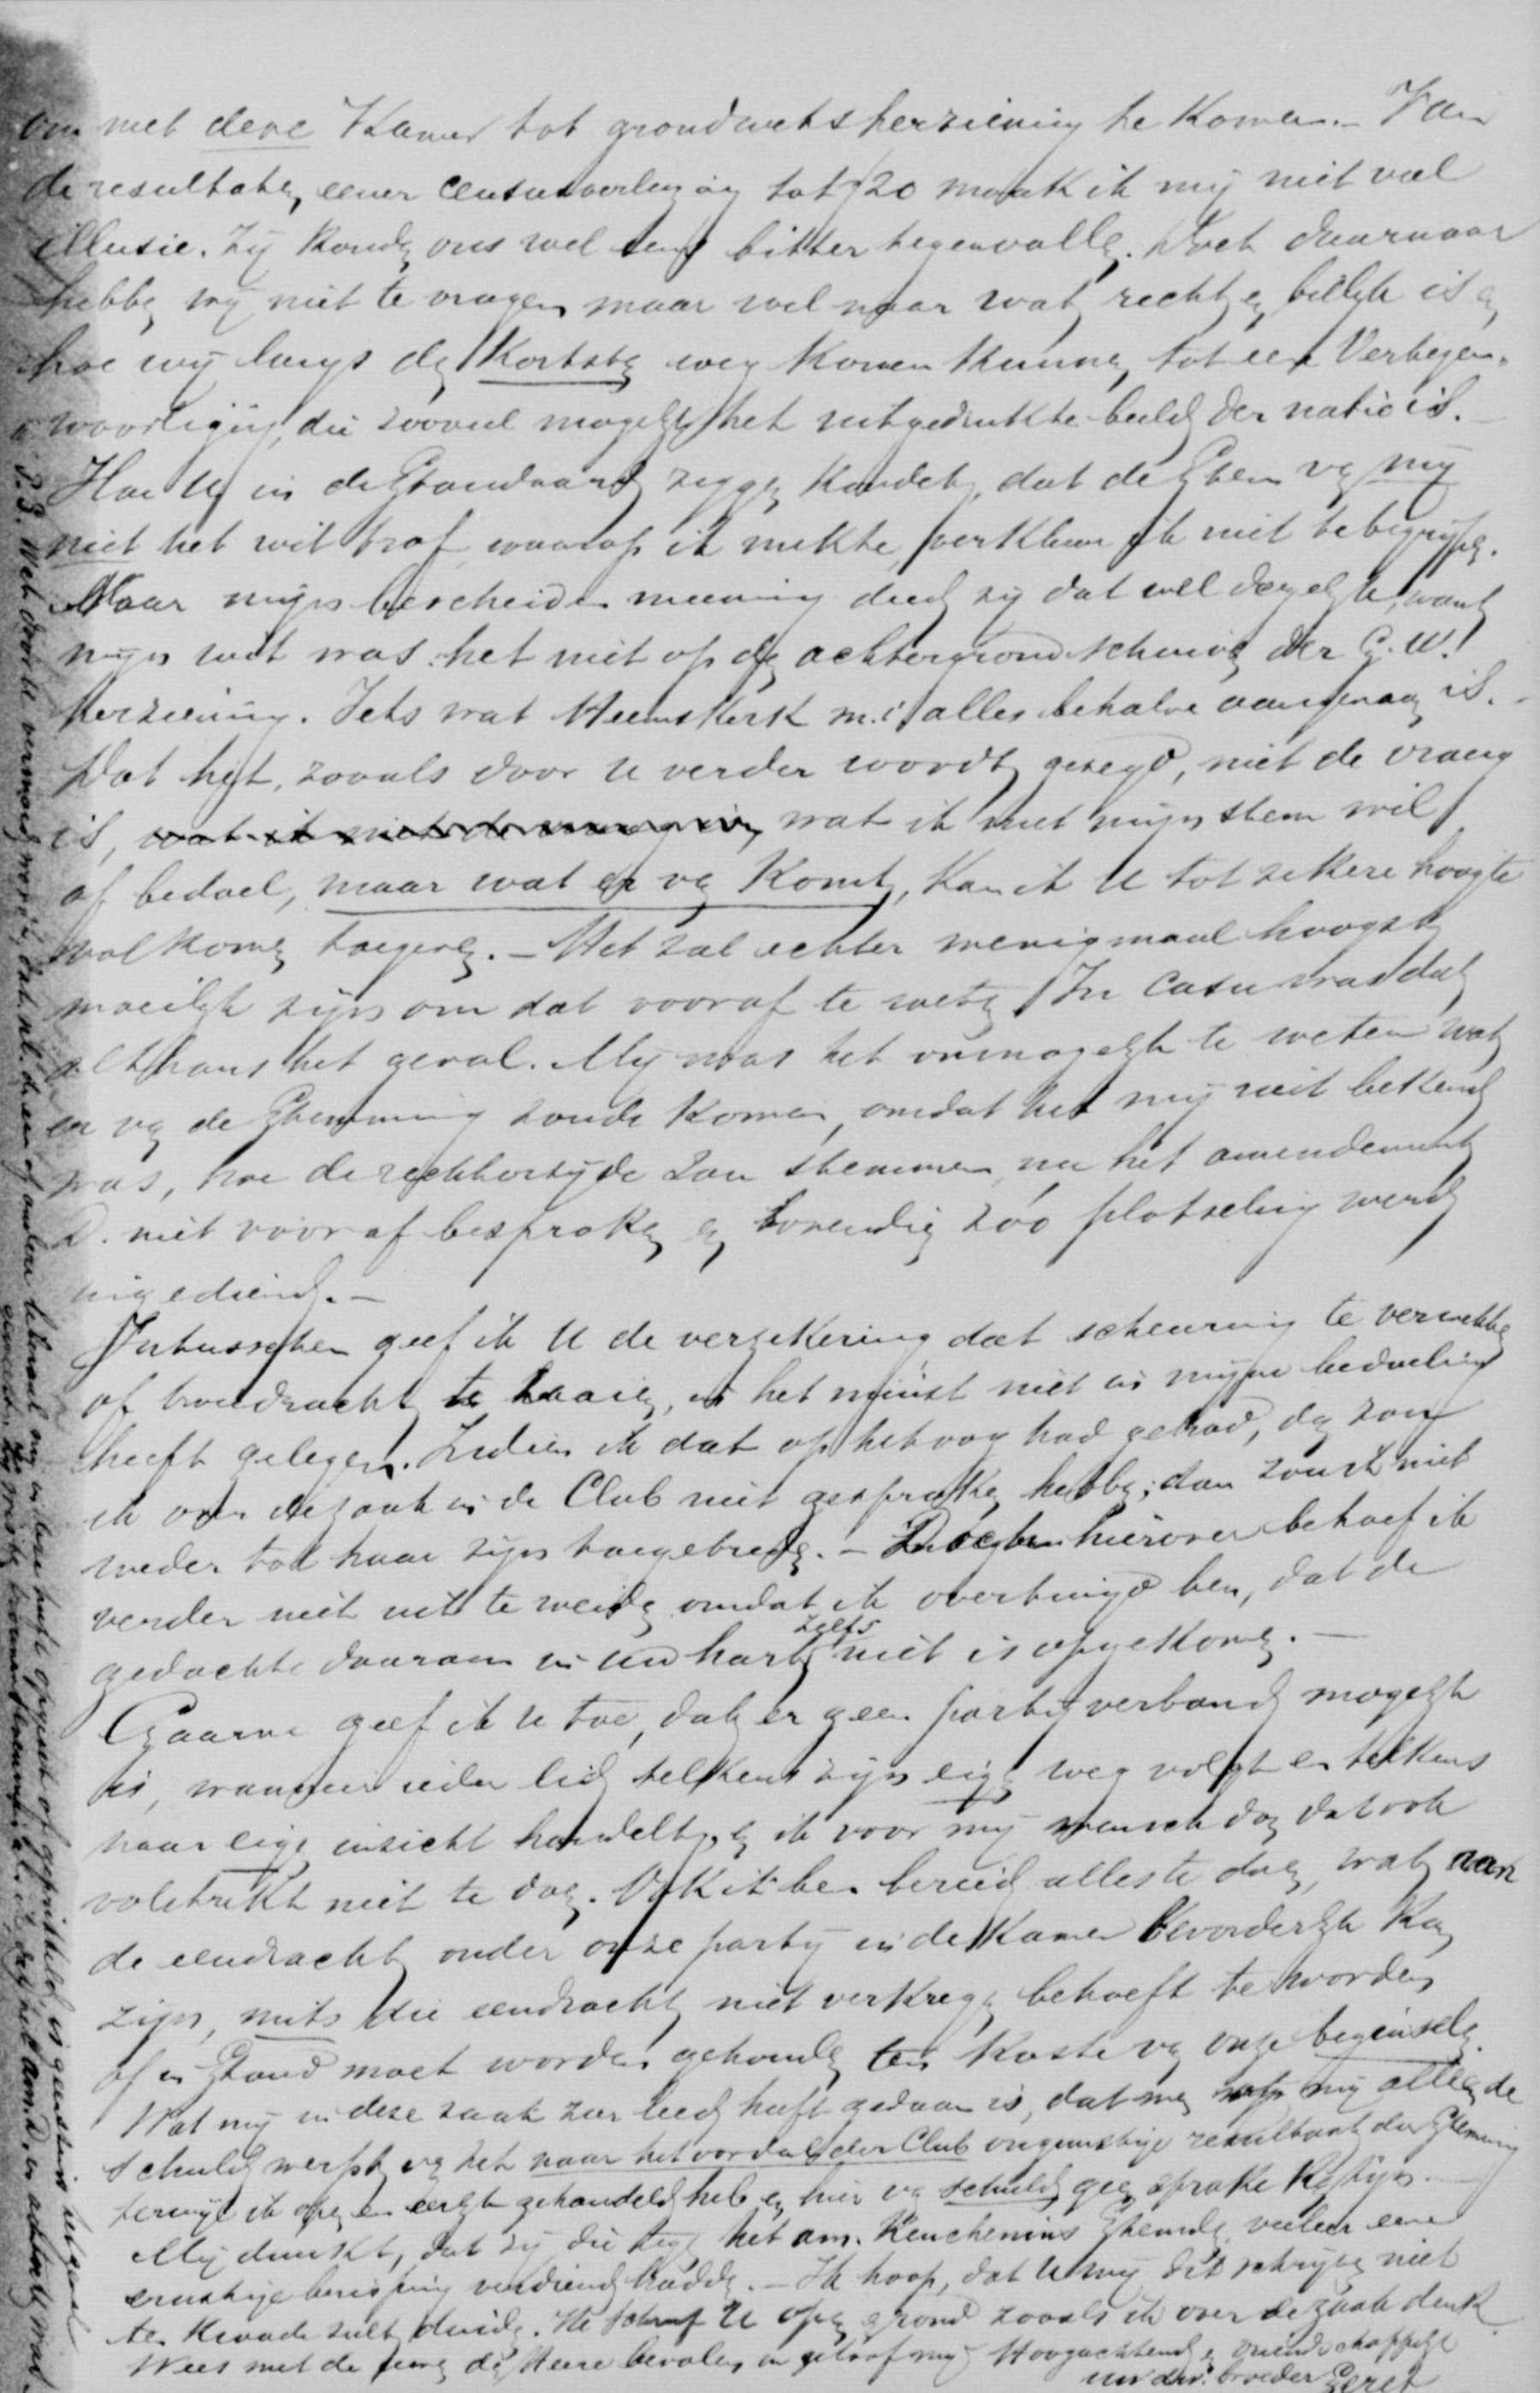 om met deze Kamer tot grondwetsherziening te komen. – Van
de resultaten eener censusverlaging tot ƒ20 maak ik mij niet veel
illusie. Zij konden ons wel eens bitter tegenvallen. Doch daarnaar
hebben wij niet te vragen maar wel naar wat recht en billijk is en
hoe wij langs den kortsten weg komen kunnen tot een Vertegen-
woordiging, die zooveel mogelijk het uitgedrukte beeld der natie is. –
Hoe U in de Standaard zeggen kondet, dat de Stem van mij
niet het wit trof, waarop ik mikte, verklaar ik niet te begrijpen.
Naar mijn bescheiden meening deed zij dat wel degelijk, want
mijn wit was: het niet op den achtergrond schuiven der G.W.
herziening. Iets wat Heemskerk m.i. alles behalve aangenaam is. –
Dat het, zooals door U verder wordt gezegd, niet de vraag
is, wat ik met mijn stem wil
of bedoel, maar wat er van komt, kan ik U tot zekere hoogte
volkomen toegeven. – Het zal echter menigmaal hoogst
moeilijk zijn om dat vooraf te weten. In casu was dat
althans het geval. Mij was het onmogelijk te weten wat
er van de Stemming zoude komen, omdat het mij niet bekend
was, hoe de rechterzijde zou stemmen, nu het amendement
D. niet vooraf besproken en bovendien zóó plotseling werd
ingediend. –
Intusschen geef ik U de verzekering dat scheuring te verwekken
of tweedracht te zaaien, in het minst niet in mijne bedoeling
heeft gelegen. Indien ik dat op het oog had gehad, dan zou
ik over de zaak in de Club niet gesproken hebben; dan zou ik niet
weder tot haar zijn toegetreden. – Doch hierover behoef ik
verder niet uit te weiden omdat ik overtuigd ben, dat de
gedachte daaraan in Uw hart zelfs niet is opgekomen. –
Gaarne geef ik U toe, dat er geen partijverband mogelijk
is, wanneer ieder lid telkens zijn eigen weg volgt en telkens
naar eigen inzicht handelt, en ik voor mij wensch dan dat ook
volstrekt niet te doen. Ook ik ben bereid alles te doen, wat aan
de eendracht onder onze partij in de Kamer bevorderlijk kan
zijn, mits die eendracht niet verkregen behoeft te worden
of in Stand moet worden gehouden ten koste van onze beginselen.
Wat mij in deze zaak zeer leed heeft gedaan is, dat men op mij alleen de
schuld werpt van het naar het oordeel der Club ongunstige resultaat der Stemming
terwijl ik open en eerlijk gehandeld heb en hier van schuld geen sprake kan zijn. –
Mij dunkt, dat zij die tegen het am. Keuchenius Stemden veeleer eene
ernstige berisping verdiend hadden. – Ik hoop, dat U mij dit schrijven niet
ten kwade zult duiden. Ik schreef U open en rond zooals ik over de zaak denk.
Wees met de uwen den Heere bevolen en geloof mij Hoogachtend en vriendschappelijk
uw dw. broeder Seret